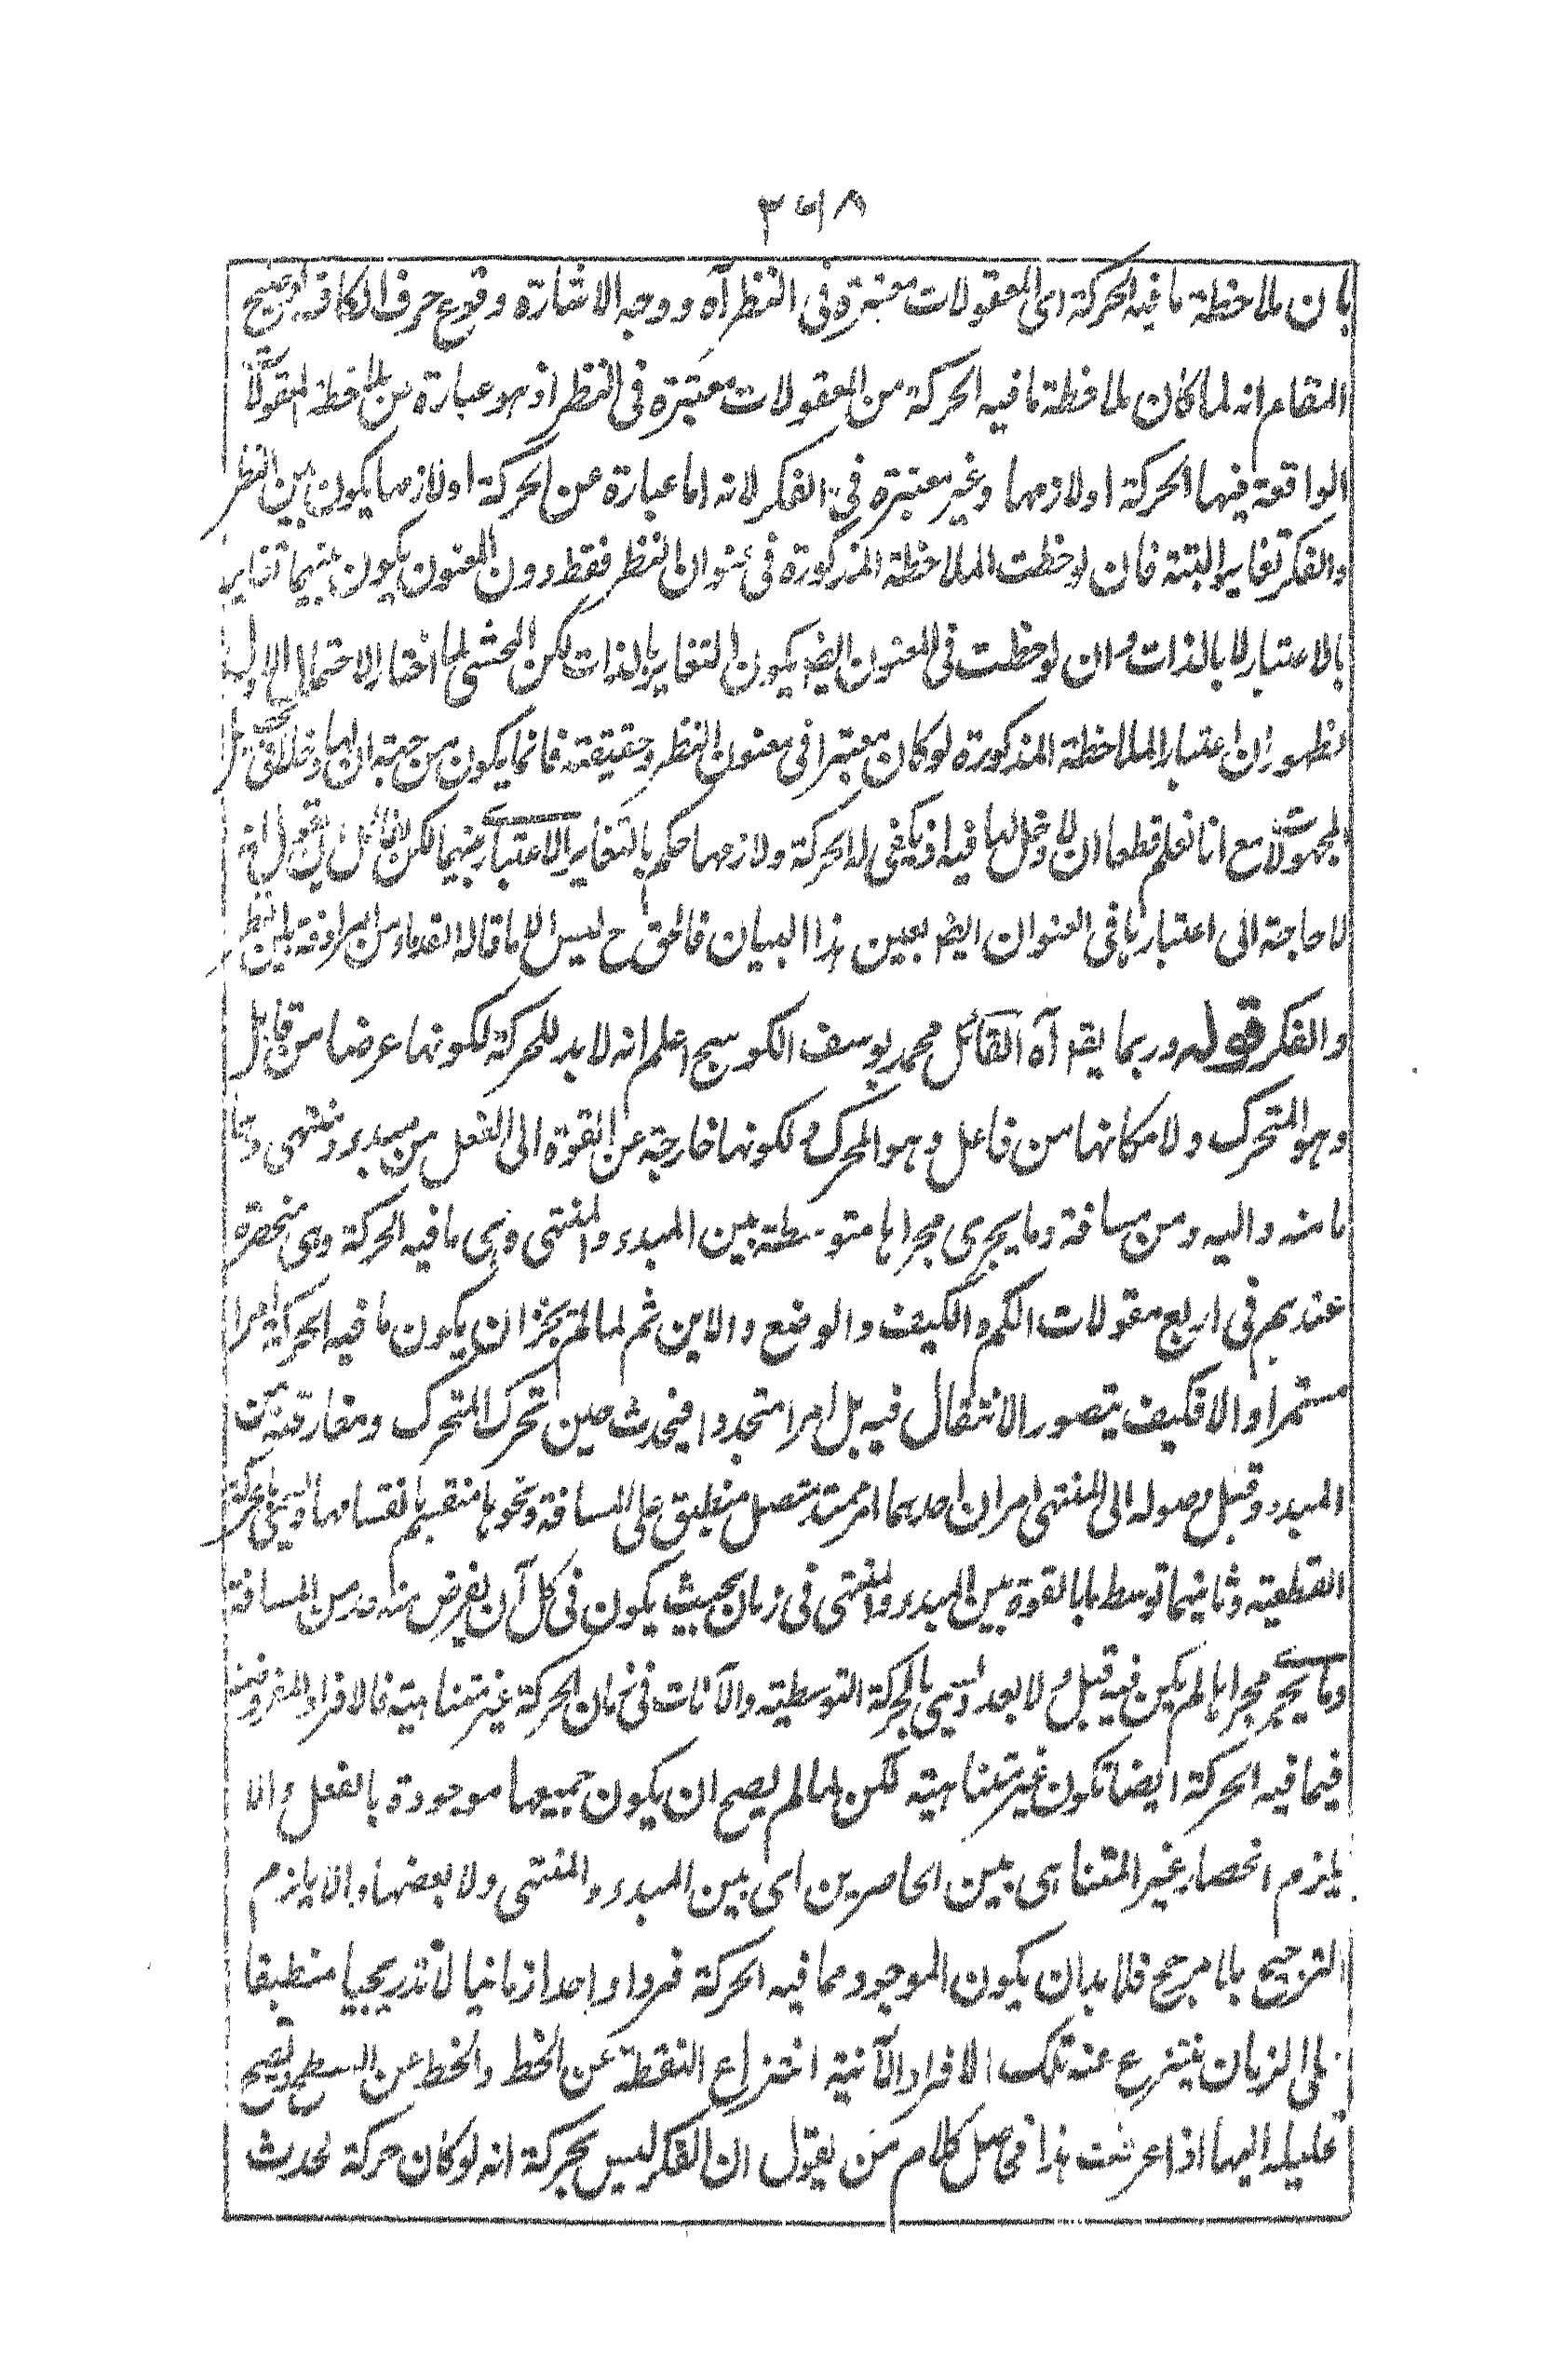 ٣٦٨
بان ملاحظة ما فيه الحركة اى المعقولات معتبرة فى النظر آه ووجه الاشارة وقوع حرف الكاف توضيح
المقام انه لما كان ملاحظة ما فيه الحركة من المعقولات معتبرة فى النظر اذ هو عبارة من ملاحظة المعقولات
الواقعة فيها الحركة او لازمها وغير معتبرة فى الفكر لانه اما عبارة عن الحركة او لازمها يكون بين النظر
والفكر تغاير البتة فان لوحظت الملاحظة المذكورة فى عنوان النظر فقط دون المعنون يكون بينهما تغاير
بالاعتبار لا بالذات وان لوحظت فى المعنون ايضا يكون التغاير بالذات لكن المحشى لما اختار الاحتمال الاول
لظهور ان اعتبار الملاحظة المذكورة لو كان معتبرا فى معنون النظر وحقيقته فانما يكون من جهة ان لها دخلا فى تحصيل
المجهولات مع انا نعلم قطعا ان لا دخل لها فيه اذ يكفى له الحركة ولازمها حكم بالتغاير الاعتبارى بينهما لكن لقائل ان يقول انه
لا حاجة الى اعتبارها فى العنوان ايضا بعين هذا البيان فالحق ح ليس الا ما قاله القدماء من المرادفة بين النظر
والفكر قوله وربما يقو آه القائل محمد يوسف الكوسج اعلم انه لا بد للحركة لكونها عرضا من قابل
وهو المتحرك ولامكانها من فاعل وهو المحرك ولكونها خارجة عن القوة الى الفعل من مبدء ومنتهى وهما
ما منه واليه ومن مسافة وما يجرى مجراها متوسطة بين المبدء والمنتهى وهى ما فيه الحركة وهى منحصرة
عندهم فى اربع مقولات الكم والكيف والوضع والاين ثم لما لم يجز ان يكون ما فيه الحركة امرا
مستمرا والا فكيف يتصور الانتقال فيه بل امرا متجددا فيحدث حين تحرك المتحرك ومفارقته من
المبدء وقبل وصوله الى المنتهى امران احدهما امر ممتد متصل منطبق على المسافة ونحوها منقسم بانقسامها ويسمى بالحركة
القطعية وثانيهما توسط ما بالقوة بين المبدء والمنتهى فى زمان بحيث يكون فى كل آن يفرض منه حد من المسافة
وما يجرى مجراها لم يكن فيه قبل ولا بعد ويسمى بالحركة التوسطية والآنات فى زمان الحركة غير متناهية فالافراد المفروضة
فيما فيه الحركة ايضا تكون غير متناهية لكن لما لم يصح ان يكون جميعها موجودة بالفعل والا
يلزم انحصار غير المتناهى بين الحاصرين اى بين المبدء والمنتهى ولا بعضها والا يلزم
الترجيح بلا مرجح فلا بد ان يكون الموجود مما فيه الحركة فردا واحدا زمانيا لا تدريجيا منطبقا
على الزمان ينتزع عنه تلك الافراد الآنية انتزاع النقطة عن الخط والخط عن السطح ويصح
تحليله اليها اذا عرفت هذا فحاصل كلام من يقول ان الفكر ليس بحركة انه لو كان حركة لحدث